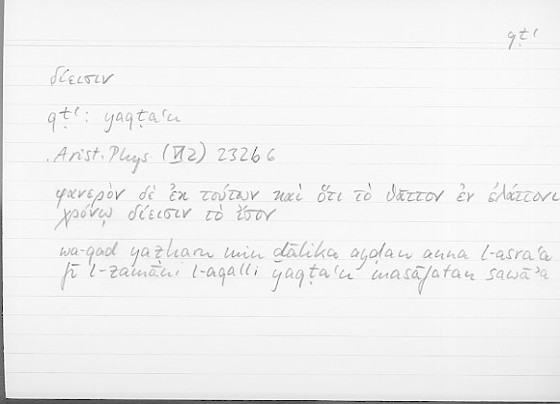 qṭʿ
δίεισιν
qṭʿ: yaqṭaʿu
Arist. Phys (VI 2) 232b6
φανερὸν δὲ ἐκ τούτων καὶ ὅτι τὸ θᾶττον ἐν ἐλάττονι
χρόνῳ δίεισιν τὸ ἴσον
wa-qad yaẓharu min ḏālika ayḍan anna l-asraʿa
fī l-zamāni l-aqalli yaqṭaʿu masāfatan sawāʾa